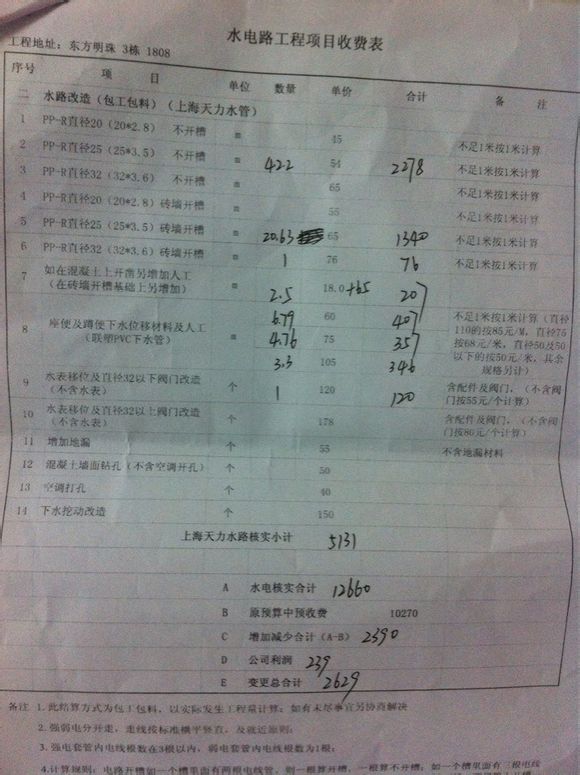 水电路工程项目收费表
工程地址：东方明珠 3栋 1808
序号 项 目 单位 数量 单价 合计 备 注
二 水路改造（包工包料）（上海天力水管）
1 PP-R直径20（20*2.8） 不开槽 m 45 不足1米按1米计算
2 PP-R直径25（25*3.5） 不开槽 m 42.2 54 2278 不足1米按1米计算
3 PP-R直径32（32*3.6） 不开槽 m 65 不足1米按1米计算
4 PP-R直径20（20*2.8）砖墙开槽 m 55 不足1米按1米计算
5 PP-R直径25（25*3.5）砖墙开槽 m 20.63 65 1340 不足1米按1米计算
6 PP-R直径32（32*3.6）砖墙开槽 m 1 76 76 不足1米按1米计算
7 如在混凝土上开凿另增加人工
（在砖墙开槽基础上另增加） m 2.5 18.0+65 207
8 座便及蹲便下水位移材料及人工
（联塑PVC下水管） m 6.79 60 407
4.76 75 357
3.3 105 346
不足1米按1米计算（直径
110的按85元/M，直径75
按68元/米，直径50及50
以下的按50元/米，其余
规格另计）
9 水表移位及直径32以下阀门改造
（不含水表） 个 1 120 120 含配件及阀门，（不含阀
门按55元/个计算）
10 水表移位及直径32以上阀门改造
（不含水表） 个 178 含配件及阀门，（不含阀
门按80元/个计算）
11 增加地漏 个 55 不含地漏材料
12 混凝土墙面钻孔（不含空调开孔） 个 50
13 空调打孔 个 40
14 下水挖动改造 个 150
上海天力水路核实小计 5131
A 水电核实合计 12660
B 原预算中预收费 10270
C 增加减少合计（A-B） 2390
D 公司利润 239
E 变更总合计 2629
备注 1.此结算方式为包工包料，以实际发生工程量计算；如有未尽事宜另协商解决
2.强弱电分开走，走线按标准横平竖直，及就近原则；
3.强电套管内电线根数在3根以内，弱电套管内电线根数为1根；
4.计算规则：电路开槽如一个槽里面有两根电线管，则一根算开槽，一根算不开槽；如一个槽里面有三根电线